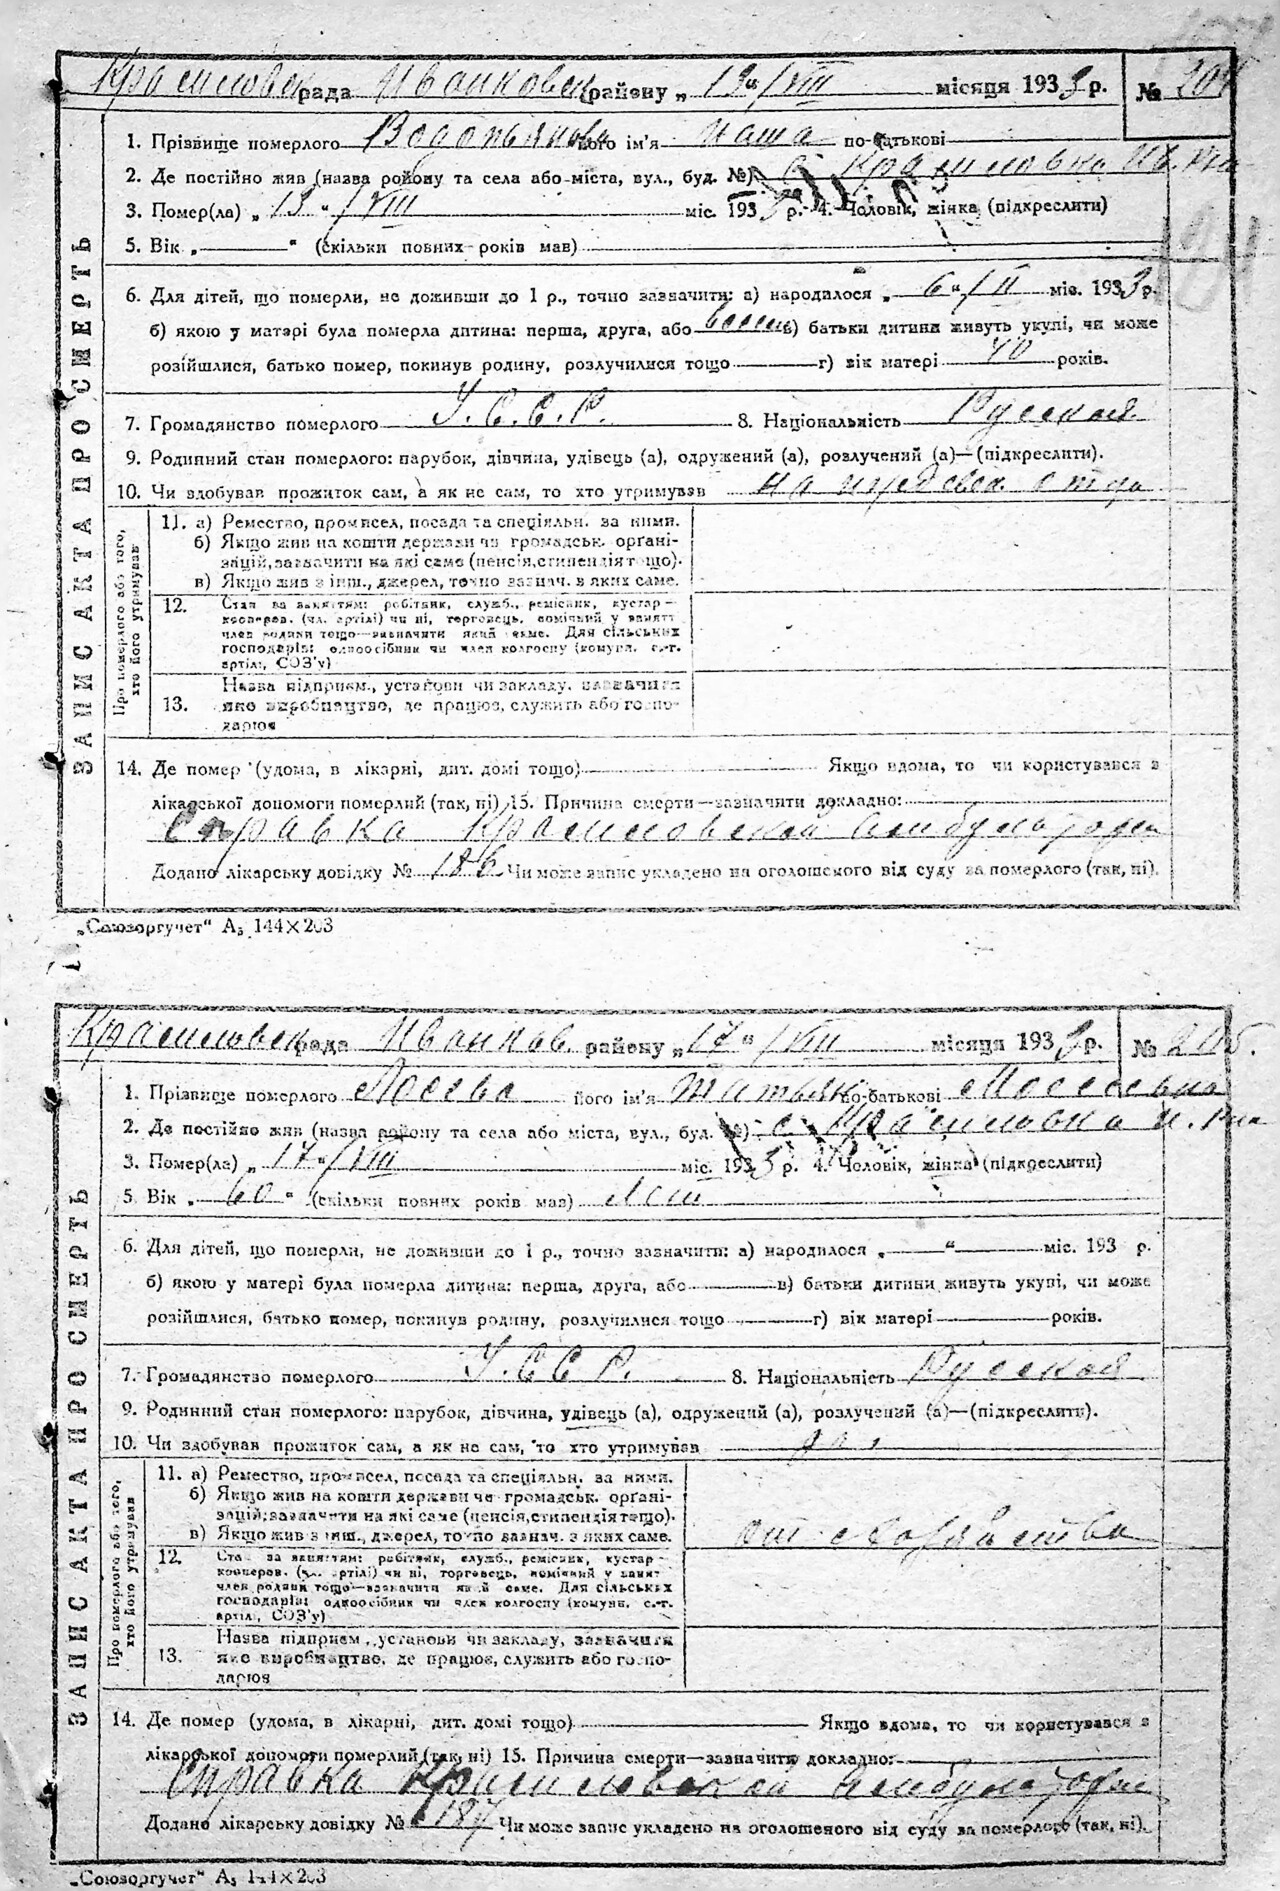 Красиловск рада Иванковск району „ 13 “ /VIII місяця 1933 р. № 204
1. Прізвище померлого Водопьянова його ім'я Наша по-батькові
2. Де постійно жив (назва району та села або міста, вул., буд. №) с. Красиловка Ив. р-на
3. Помер(ла) „ 13 “ /VIII міс. 1933 р. 4. Чоловік, жінка (підкреслити)
5. Вік „ “ (скільки повних років мав)
6. Для дітей, що померли, не доживши до 1 р., точно зазначити: а) народилося „ 6 “ /II міс. 1933 р.
б) якою у матері була померла дитина: перша, друга, або в) батьки дитини живуть укупі, чи може
розійшлися, батько помер, покинув родину, розлучилися тощо г) вік матері 40 років.
7. Громадянство померлого У.С.С.Р. 8. Національність Русская
9. Родинний стан померлого: парубок, дівчина, удівець (а), одружений (а), розлучений (а)—(підкреслити).
10. Чи здобував прожиток сам, а як не сам, то хто утримував на отца
ЗАПИС АКТА ПРО СМЕРТЬ
Про померлого або того, хто його утримував
11. а) Ремество, промисел, посада та спеціяльн. за ними.
б) Якщо жив на кошти держави чи громадськ. орґані-
зацій, зазначити на які саме (пенсія, стипендія тощо).
в) Якщо жив з інш., джерел, точно зазнач. в яких саме.
12. Стан за заняттям: робітник, служб., ремісник, кустар—
кооперов. (чл. артілі) чи ні, торговець, помічний у занятт
член родини тощо—зазначити який саме. Для сільських
господарів: одноосібник чи член колгоспу (комуни, с.-г.
артілі, СОЗ'у)
13. Назва підприєм., установи чи закладу, зазначити
яке виробництво, де працює, служить або госпо-
дарює
14. Де помер (удома, в лікарні, дит. домі тощо) Якщо вдома, то чи користувався з
лікарської допомоги померлий (так, ні) 15. Причина смерти—зазначити докладно:
Справка Красиловской амбулатории
Додано лікарську довідку № 186 Чи може запис укладено на оголошеного від суду за померлого (так, ні).
„Союзоргучет“ А₅ 144×203
Красиловск рада Иванков. району „ 17 “ /VIII місяця 1933 р. № 205.
1. Прізвище померлого Лосева його ім'я Татьяна по-батькові Моесеевна
2. Де постійно жив (назва району та села або міста, вул., буд. №) с. Красиловка И. р-на
3. Помер(ла) „ 17 “ /VIII міс. 1933 р. 4. Чоловік, жінка (підкреслити)
5. Вік „ 60 “ (скільки повних років мав) лет
6. Для дітей, що померли, не доживши до 1 р., точно зазначити: а) народилося „ “ міс. 193 р.
б) якою у матері була померла дитина: перша, друга, або в) батьки дитини живуть укупі, чи може
розійшлися, батько помер, покинув родину, розлучилися тощо г) вік матері років.
7. Громадянство померлого У.С.С.Р. 8. Національність Русская
9. Родинний стан померлого: парубок, дівчина, удівець (а), одружений (а), розлучений (а)—(підкреслити).
10. Чи здобував прожиток сам, а як не сам, то хто утримував
ЗАПИС АКТА ПРО СМЕРТЬ
Про померлого або того, хто його утримував
11. а) Ремество, промисел, посада та спеціяльн. за ними.
б) Якщо жив на кошти держави че громадськ. орґані-
зацій, зазначити на які саме (пенсія, стипендія тощо).
в) Якщо жив з інш., джерел, точно зазнач. з яких саме.
от хозяйства
12. Стан за заняттям: робітник, служб., ремісник, кустар—
кооперов. (чл. артілі) чи ні, торговець, помічний у занят
член родини тощо—зазначити який саме. Для сільських
господарів: одноосібник чи член колгоспу (комуни, с.-г.
артілі, СОЗ'у)
13. Назва підприєм., установи чи закладу, зазначити
яке виробництво, де працює, служить або госпо-
дарює
14. Де помер (удома, в лікарні, дит. домі тощо) Якщо вдома, то чи користувався з
лікарської допомоги померлий (так, ні) 15. Причина смерти—зазначити докладно:
Справка Красиловской амбулатории
Додано лікарську довідку № 187 Чи може запис укладено на оголошеного від суду за померлого (так, ні).
„Союзоргучет“ А₅ 144×203